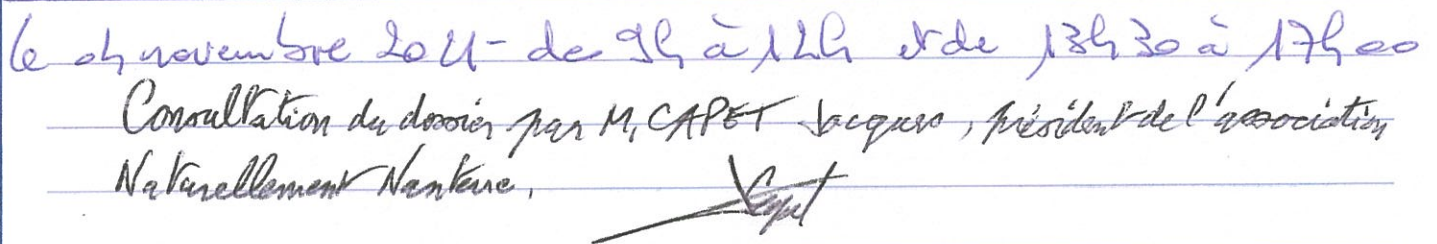 le 04 novembre 2021 - de 9h à 12h et de 13h30 à 17h00
Consultation du dossier par M, CAPET Jacques, président de l'association
Naturellement Nanterre. Capet